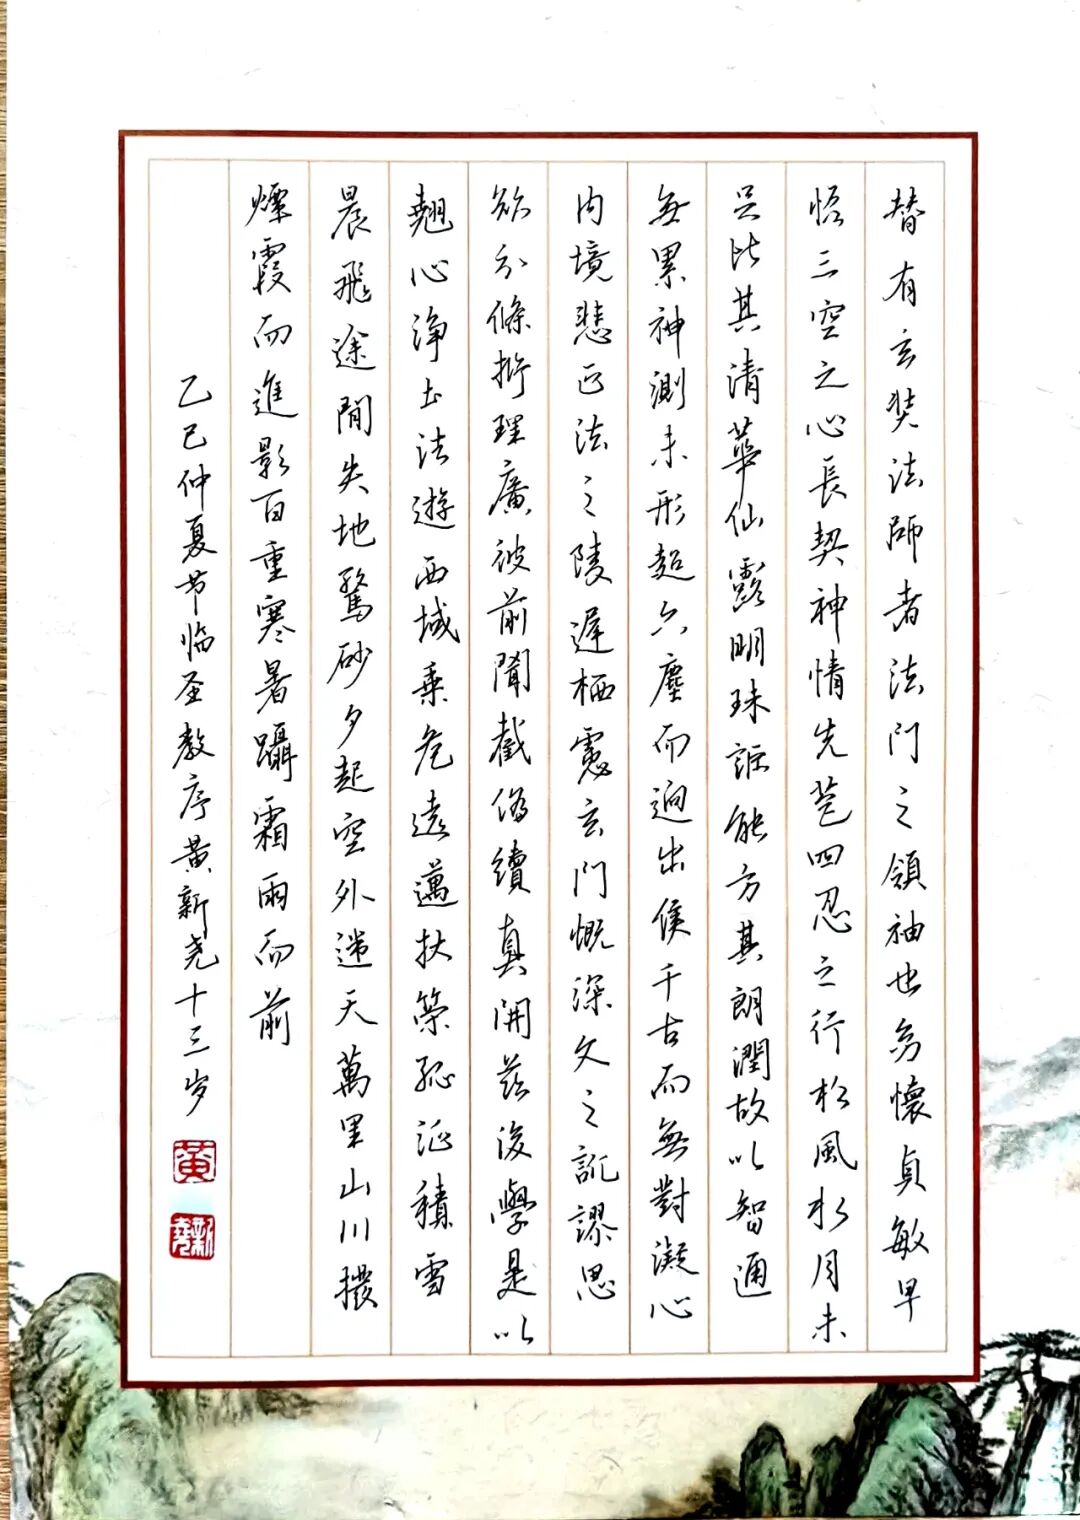 替有玄奘法師者法門之領袖也幼懷貞敏早
悟三空之心長契神情先苞四忍之行松風水月未
足比其清華仙露明珠詎能方其朗潤故以智通
無累神測未形超六塵而迥出侯千古而無對凝心
内境悲正法之陵遲栖慮玄門慨深文之訛謬思
欲分條析理廣彼前聞截偽續真開茲後學是以
翹心淨土法遊西域乘危遠邁杖策孤征積雪
晨飛途間失地驚砂夕起空外迷天萬里山川撥
煙霞而進影百重寒暑躡霜雨而前
乙巳仲夏节临圣教序黄新尧十三岁
黄
新尧